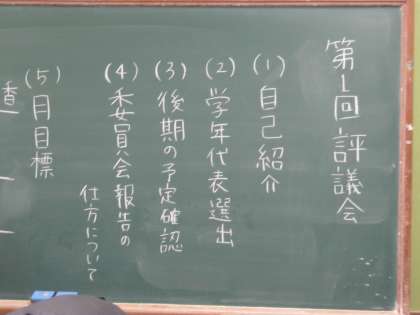 第1回評議会
(1)自己紹介
(2)学年代表選出
(3)後期の予定確認
(4)委員会報告の
仕方について
(5)月目標